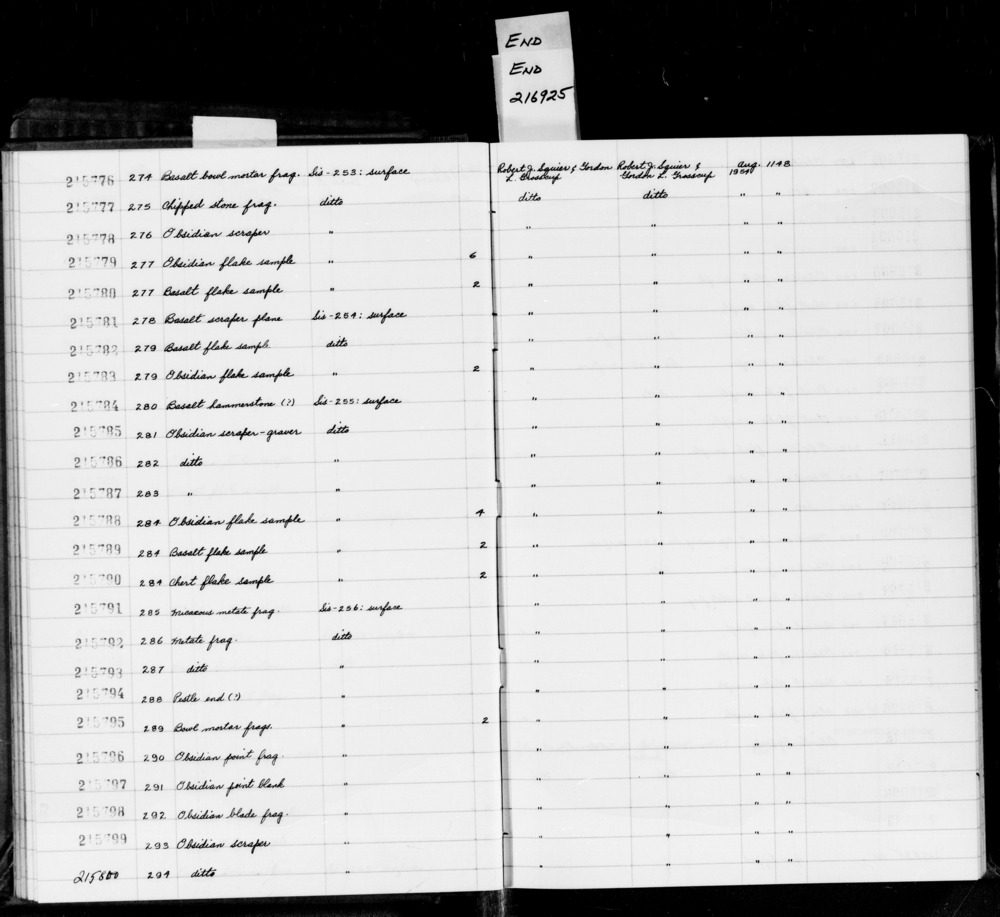 END
END
216925
215776 274 Basalt bowl mortar frag. Sis-253: surface Robert J. Squier & Gordon L. Grosscup Robert J. Squier & Gordon L. Grosscup Aug. 1954 1148
215777 275 Chipped stone frag. ditto ditto ditto " "
215778 276 Obsidian scraper " " " " "
215779 277 Obsidian flake sample " 6 " " " "
215780 277 Basalt flake sample " 2 " " " "
215781 278 Basalt scraper plane Sis-254: surface " " " "
215782 279 Basalt flake sampl. ditto " " " "
215783 279 Obsidian flake sample " 2 " " " "
215784 280 Basalt hammerstone (?) Sis-255: surface " " " "
215785 281 Obsidian scraper-graver ditto " " " "
215786 282 ditto " " " " "
215787 283 " " " " " "
215788 284 Obsidian flake sample " 4 " " " "
215789 284 Basalt flake sample " 2 " " " "
215790 284 Chert flake sample " 2 " " " "
215791 285 Micaceous metate frag. Sis-256: surface " " " "
215792 286 Metate frag. ditto " " " "
215793 287 ditto " " " " "
215794 288 Pestle end (?) " " " " "
215795 289 Bowl mortar frags. " 2 " " " "
215796 290 Obsidian point frag. " " " " "
215797 291 Obsidian point blank " " " " "
215798 292 Obsidian blade frag. " " " " "
215799 293 Obsidian scraper " " " " "
215800 294 ditto " " " " "